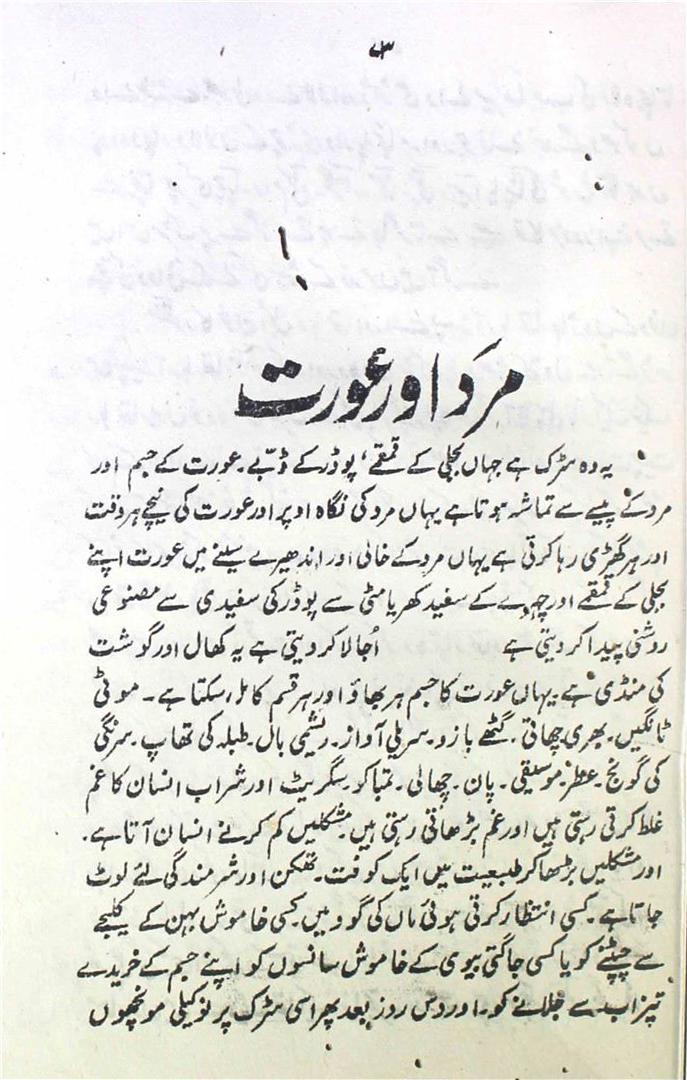 ۳
۱
مرد اور عورت
یہ وہ سڑک ہے جہاں بجلی کے قمقمے، پوڈر کے ڈبے۔ عورت کے جسم اور
مرد کے پیسے سے تماشہ ہوتا ہے یہاں مرد کی نگاہ اوپر اور عورت کی نیچے ہر وقت
اور ہر گھڑی رہا کرتی ہے یہاں مرد کے خالی اور اندھیرے سینے میں عورت اپنے
بجلی کے قمقمے اور چہرے کے سفید کھریا مٹی سے پوڈر کی سفیدی سے مصنوعی
روشنی پیدا کر دیتی ہے اُجالا کر دیتی ہے یہ کھال اور گوشت
کی منڈی ہے۔ یہاں عورت کا جسم ہر بھاؤ اور ہر قسم کا مل سکتا ہے۔ موٹی
ٹانگیں۔ بھری چھاتی۔ گٹھے بازو۔ سریلی آواز۔ ریشمی بال۔ طبلہ کی تھاپ۔ سرنگی
کی گونج۔ عطر۔ موسیقی۔ پان۔ چھالی۔ تمباکو۔ سگریٹ اور شراب انسان کا غم
غلط کرتی رہتی ہیں اور غم بڑھاتی رہتی ہیں۔ مشکلیں کم کرنے انسان آتا ہے۔
اور مشکلیں بڑھا کر طبیعت میں ایک کوفت۔ تھکن اور شرمندگی لئے لوٹ
جاتا ہے۔ کسی انتظار کرتی ہوئی ماں کی گود میں۔ کسی خاموش بہن کے کلیجے
سے چمٹنے کو یا کسی جاگتی بیوی کے خاموش سانسوں کو اپنے جسم کے خریدے
تیزاب سے جلانے کو۔ اور دس روز بعد پھر اسی سڑک پر نوکیلی مونچھوں